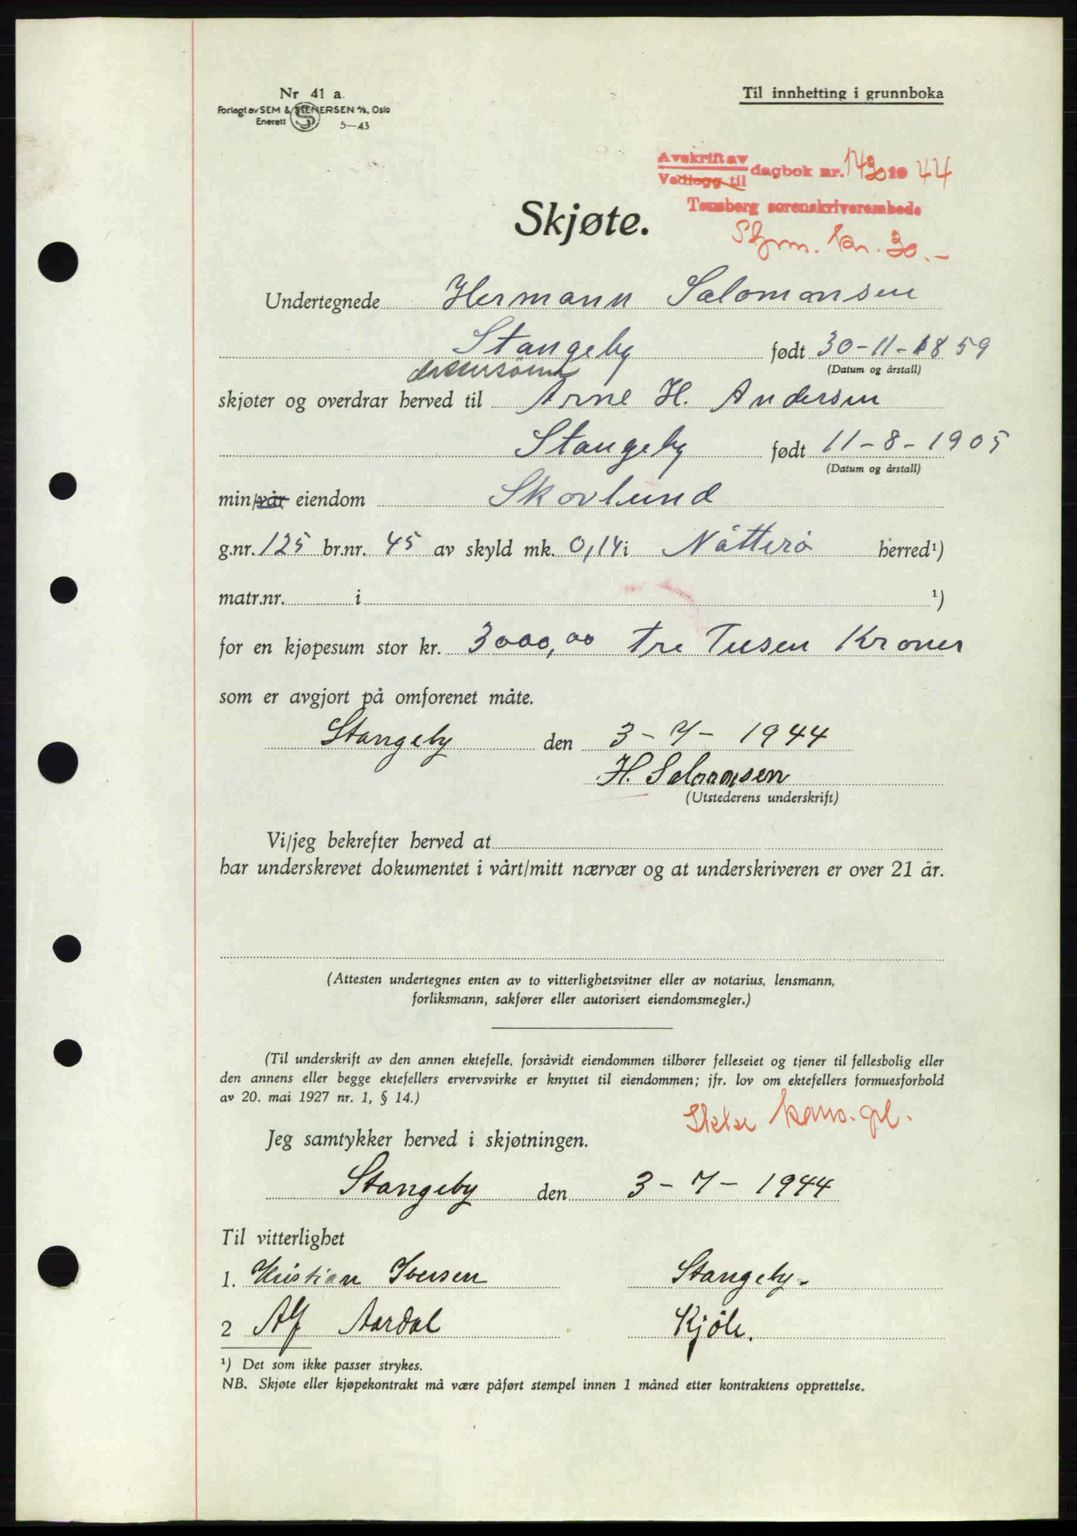 Nr 41 a.
Forlagt av SEM & STENERSEN A/S, Oslo
Enerett 5—43
Til innhefting i grunnboka
Avskrift av
Vedlegg til
dagbok nr. 1430 19 44
Tønsberg sorenskriverembede
Stpm. kr. 30.-
Skjøte.
Undertegnede Hermann Salomonsen
Stangeby født 30-11-1859
(Datum og årstall)
skjøter og overdrar herved til Arne H. Andersen
Stangeby født 11-8-1905
(Datum og årstall)
min/vår eiendom Skovlund
g.nr. 125 br.nr. 45 av skyld mk. 0,14 i Nøtterø herred¹)
matr.nr. i ¹)
for en kjøpesum stor kr. 3000,00 Tre Tusen Kroner
som er avgjort på omforenet måte.
Stangeby den 3-7-1944
H. Salomonsen
(Utstederens underskrift)
Vi/jeg bekrefter herved at
har underskrevet dokumentet i vårt/mitt nærvær og at underskriveren er over 21 år.
(Attesten undertegnes enten av to vitterlighetsvitner eller av notarius, lensmann,
forliksmann, sakfører eller autorisert eiendomsmegler.)
(Til underskrift av den annen ektefelle, forsåvidt eiendommen tilhører felleseiet og tjener til fellesbolig eller
den annens eller begge ektefellers ervervsvirke er knyttet til eiendommen; jfr. lov om ektefellers formuesforhold
av 20. mai 1927 nr. 1, § 14.)
Ikke kons.pl.
Jeg samtykker herved i skjøtningen.
Stangeby den 3-7-1944
Til vitterlighet
1. Kristian Iversen Stangeby.
2 Alf Aardal Kjøle.
¹) Det som ikke passer strykes.
NB. Skjøte eller kjøpekontrakt må være påført stempel innen 1 måned etter kontraktens opprettelse.